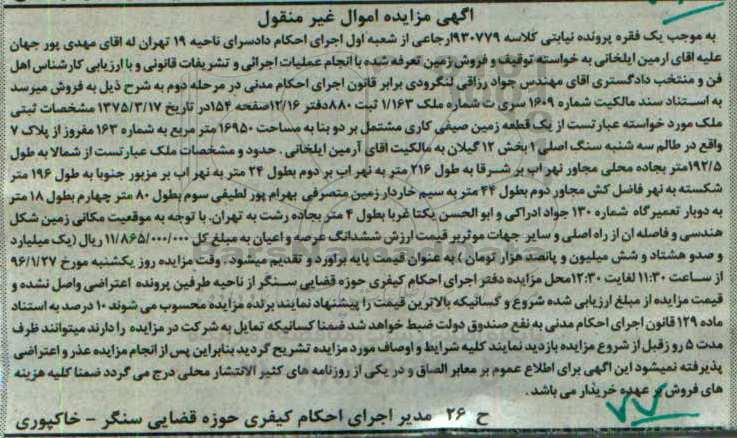 آگهی مزایده اموال غیر منقول
به موجب یک فقره پرونده نیابتی کلاسه ۹۳۰۷۷۹ارجاعی از شعبه اول اجرای احکام دادسرای ناحیه ۱۹ تهران له اقای مهدی پور جهان
علیه اقای ارمین ایلخانی به خواسته توقیف و فروش زمین تعرفه شده با انجام عملیات اجرائی و تشریفات قانونی و با ارزیابی کارشناس اهل
فن و منتخب دادگستری اقای مهندس جواد رزاقی لنگرودی برابر قانون اجرای احکام مدنی در مرحله دوم به شرح ذیل به فروش میرسد
به استناد سند مالکیت شماره ۱۶۰۹ سری ت شماره ملک ۱/۱۶۳ ثبت ۸۸۰دفتر ۱۲/۱۶صفحه ۱۵۴در تاریخ ۱۳۷۵/۳/۱۷ مشخصات ثبتی
ملک مورد خواسته عبارتست از یک قطعه زمین صیفی کاری مشتمل بر دو بنا به مساحت ۱۶۹۵۰ متر مربع به شماره ۱۶۳ مفروز از پلاک ۷
واقع در طالم سه شنبه سنگ اصلی ۱ بخش ۱۲ گیلان به مالکیت اقای آرمین ایلخانی . حدود و مشخصات ملک عبارتست از شمالا به طول
۱۹۲/۵متر بجاده محلی مجاور نهر اب بر شرقا به طول ۲۱۶ متر به نهر اب بر دوم بطول ۲۴ متر به نهر اب بر مزبور جنوبا به طول ۱۹۶ متر
شکسته به نهر فاضل کش مجاور دوم بطول ۴۴ متر به سیم خاردار زمین متصرفی بهرام پور لطیفی سوم بطول ۸۰ متر چهارم بطول ۱۸ متر
به دوبار تعمیرگاه شماره ۱۳۰ جواد ادراکی و ابو الحسن یکتا غربا بطول ۴ متر بجاده رشت به تهران. با توجه به موقعیت مکانی زمین شکل
هندسی و فاصله ان از راه اصلی و سایر جهات موثربر قیمت ارزش ششدانگ عرصه و اعیان به مبلغ کل ۱۱/۸۶۵/۰۰۰/۰۰۰ ریال (یک میلیارد
و صدو هشتاد و شش میلیون و پانصد هزار تومان ) به عنوان قیمت پایه برآورد و تقدیم میشود . وقت مزایده روز یکشنبه مورخ ۹۶/۱/۲۷
از ساعت ۱۱:۳۰ لغایت ۱۲:۳۰محل مزایده دفتر اجرای احکام کیفری حوزه قضایی سنگر از ناحیه طرفین پرونده اعتراضی واصل نشده و
قیمت مزایده از مبلغ ارزیابی شده شروع و کسانیکه بالاترین قیمت را پیشنهاد نمایند برنده مزایده محسوب می شوند ۱۰ درصد به استناد
ماده ۱۲۹ قانون اجرای احکام مدنی به نفع صندوق دولت ضبط خواهد شد ضمنا کسانیکه تمایل به شرکت در مزایده را دارند میتوانند ظرف
مدت ۵ رو زقبل از شروع مزایده بازدید نمایند کلیه شرایط و اوصاف مورد مزایده تشریح گردید بنابراین پس از انجام مزایده عذر و اعتراضی
پذیرفته نمیشود این آگهی برای اطلاع عموم بر معابر الصاق و در یکی از روزنامه های کثیر الانتشار محلی درج می گردد ضمنا کلیه هزینه
های فروش بر عهده خریدار می باشد .
ح ۲۶ مدیر اجرای احکام کیفری حوزه قضایی سنگر - خاکپوری
۷۷